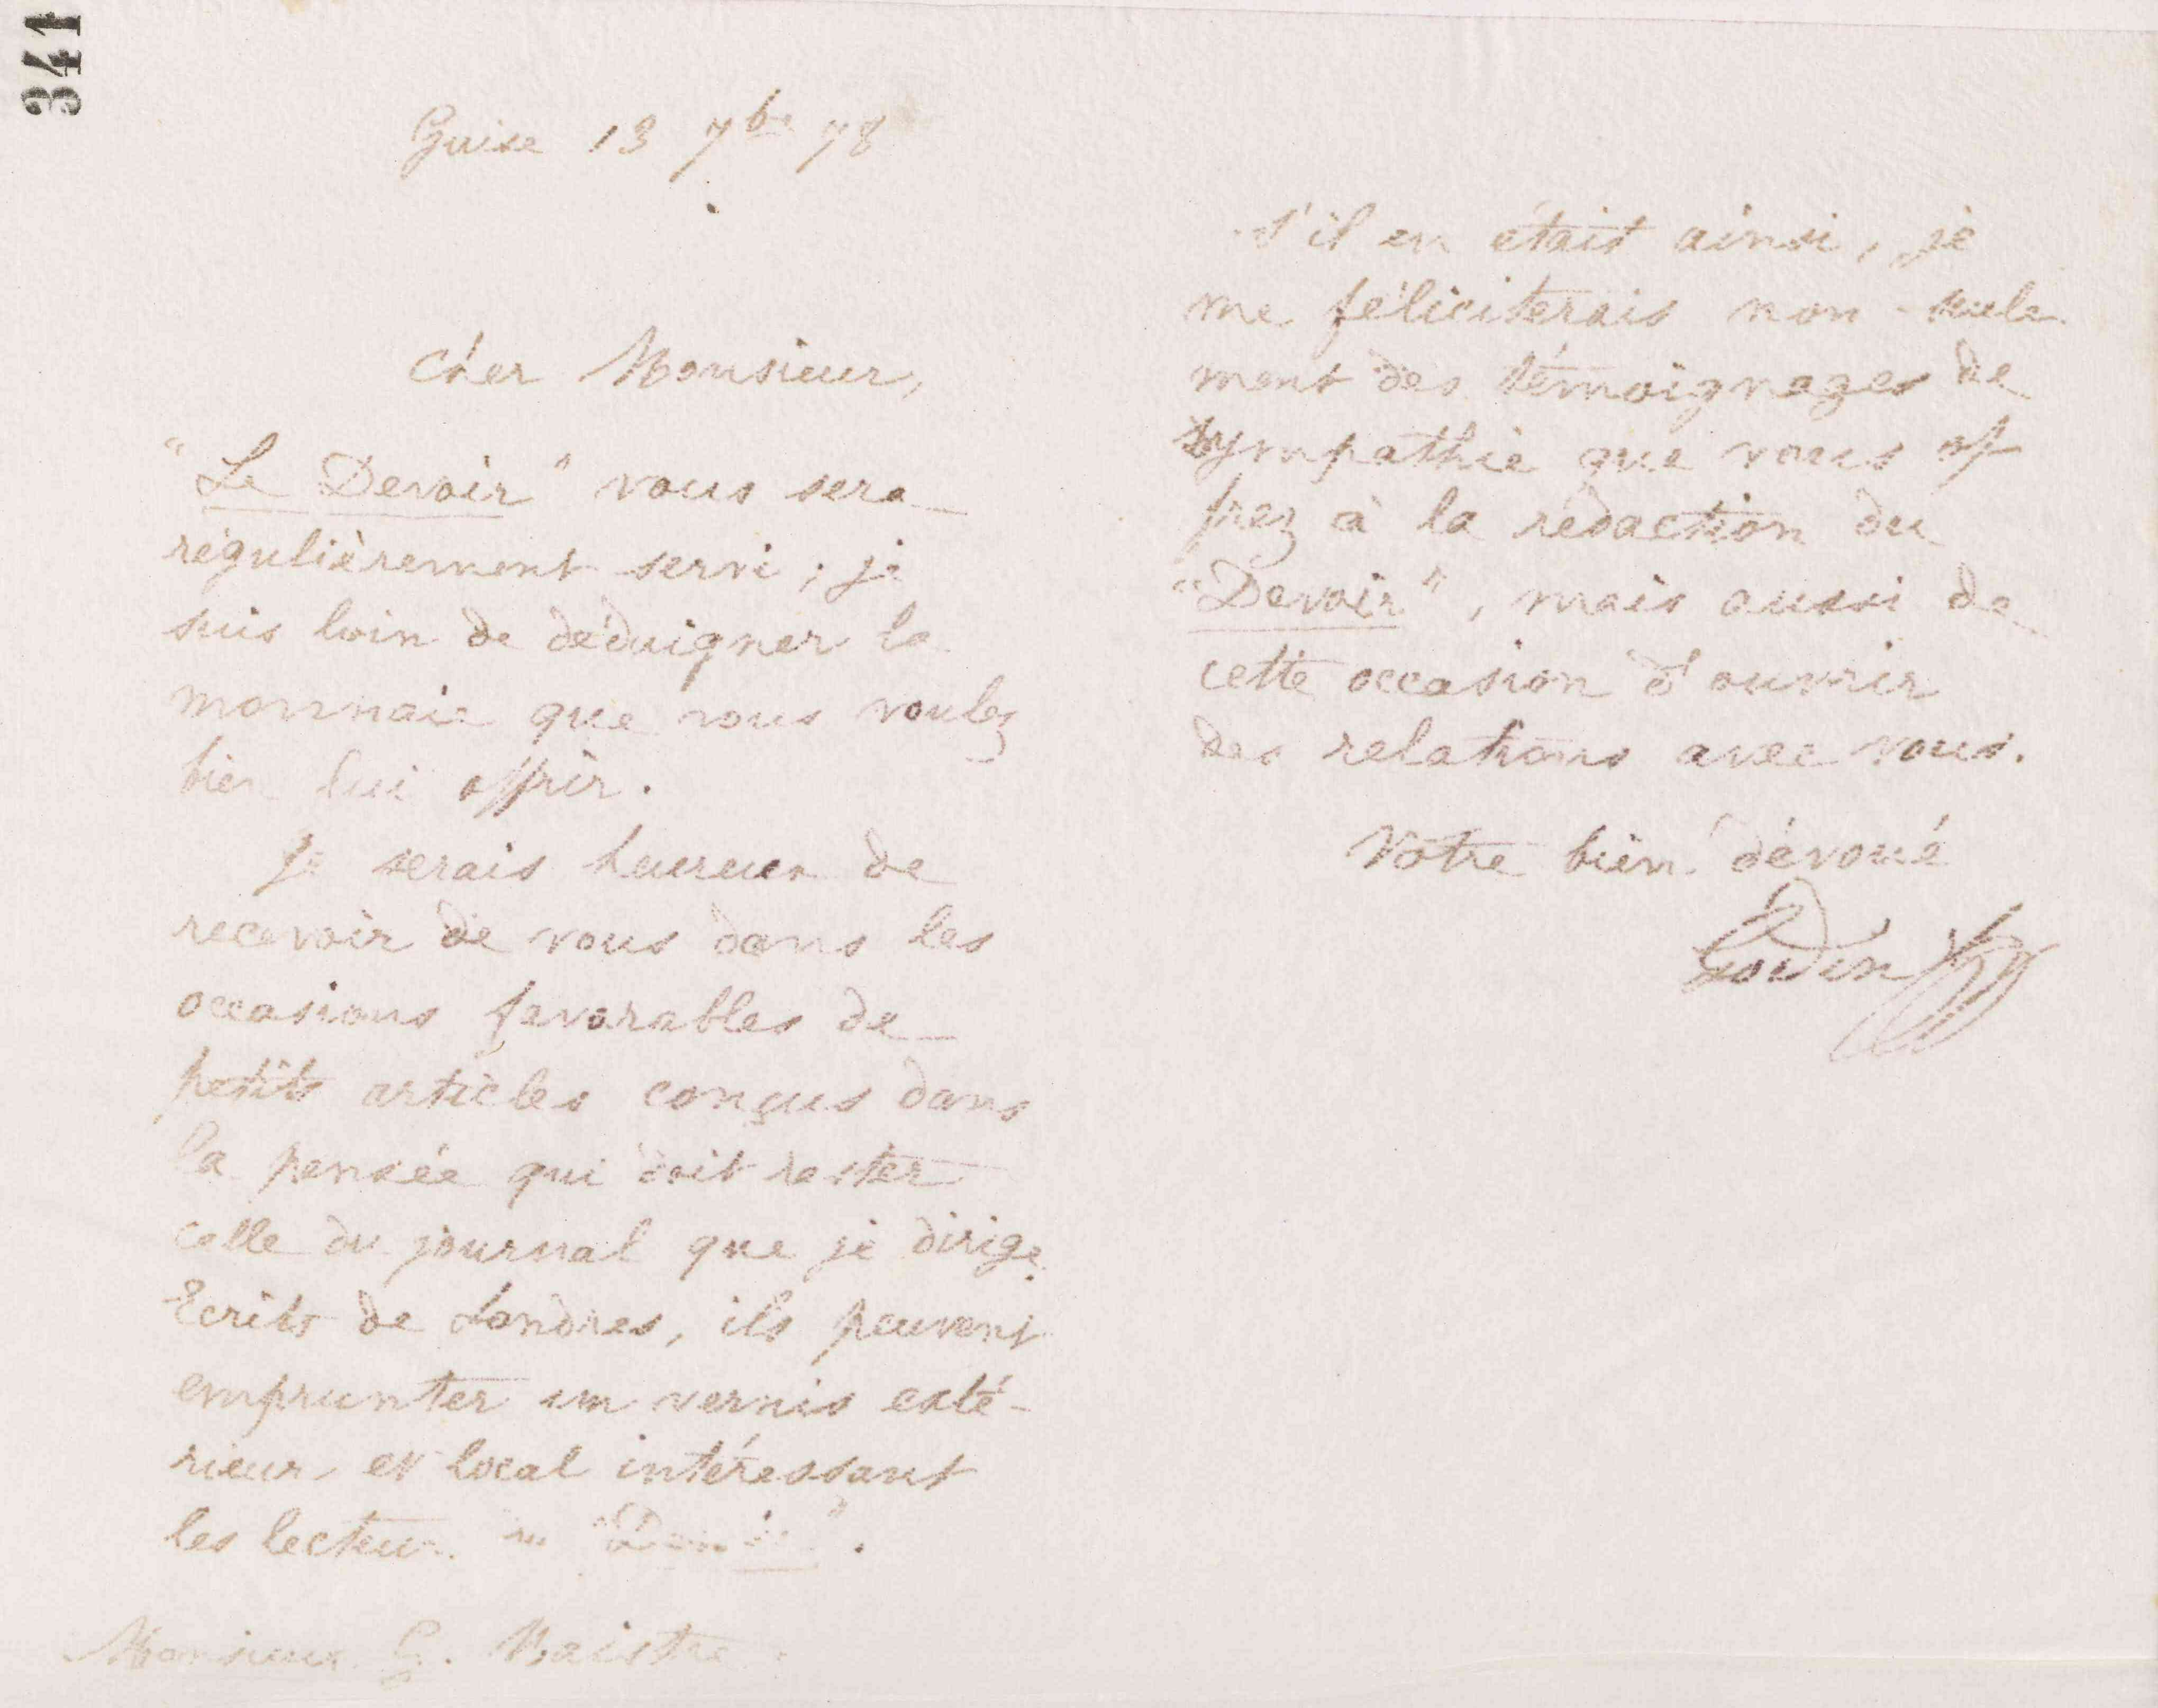 341
Guise 13 7bre 78
Cher Monsieur,
"Le Devoir" vous sera
régulièrement servi ; je
suis loin de dédaigner la
monnaie que vous voulez
bien lui offrir.
Je serais heureux de
recevoir de vous dans les
occasions favorables de
petits articles conçus dans
la pensée qui doit rester
celle du journal que je dirige.
Ecrits de Londres, ils peuvent
emprunter un vernis exté-
rieur et local intéressant
les lecteurs du "Devoir".
Monsieur G. Maistre.
S'il en était ainsi, je
me féliciterais non seule
ment des témoignages de
sympathie que vous of
frez à la rédaction du
"Devoir", mais aussi de
cette occasion d'ouvrir
des relations avec vous.
Votre bien dévoué
Godin